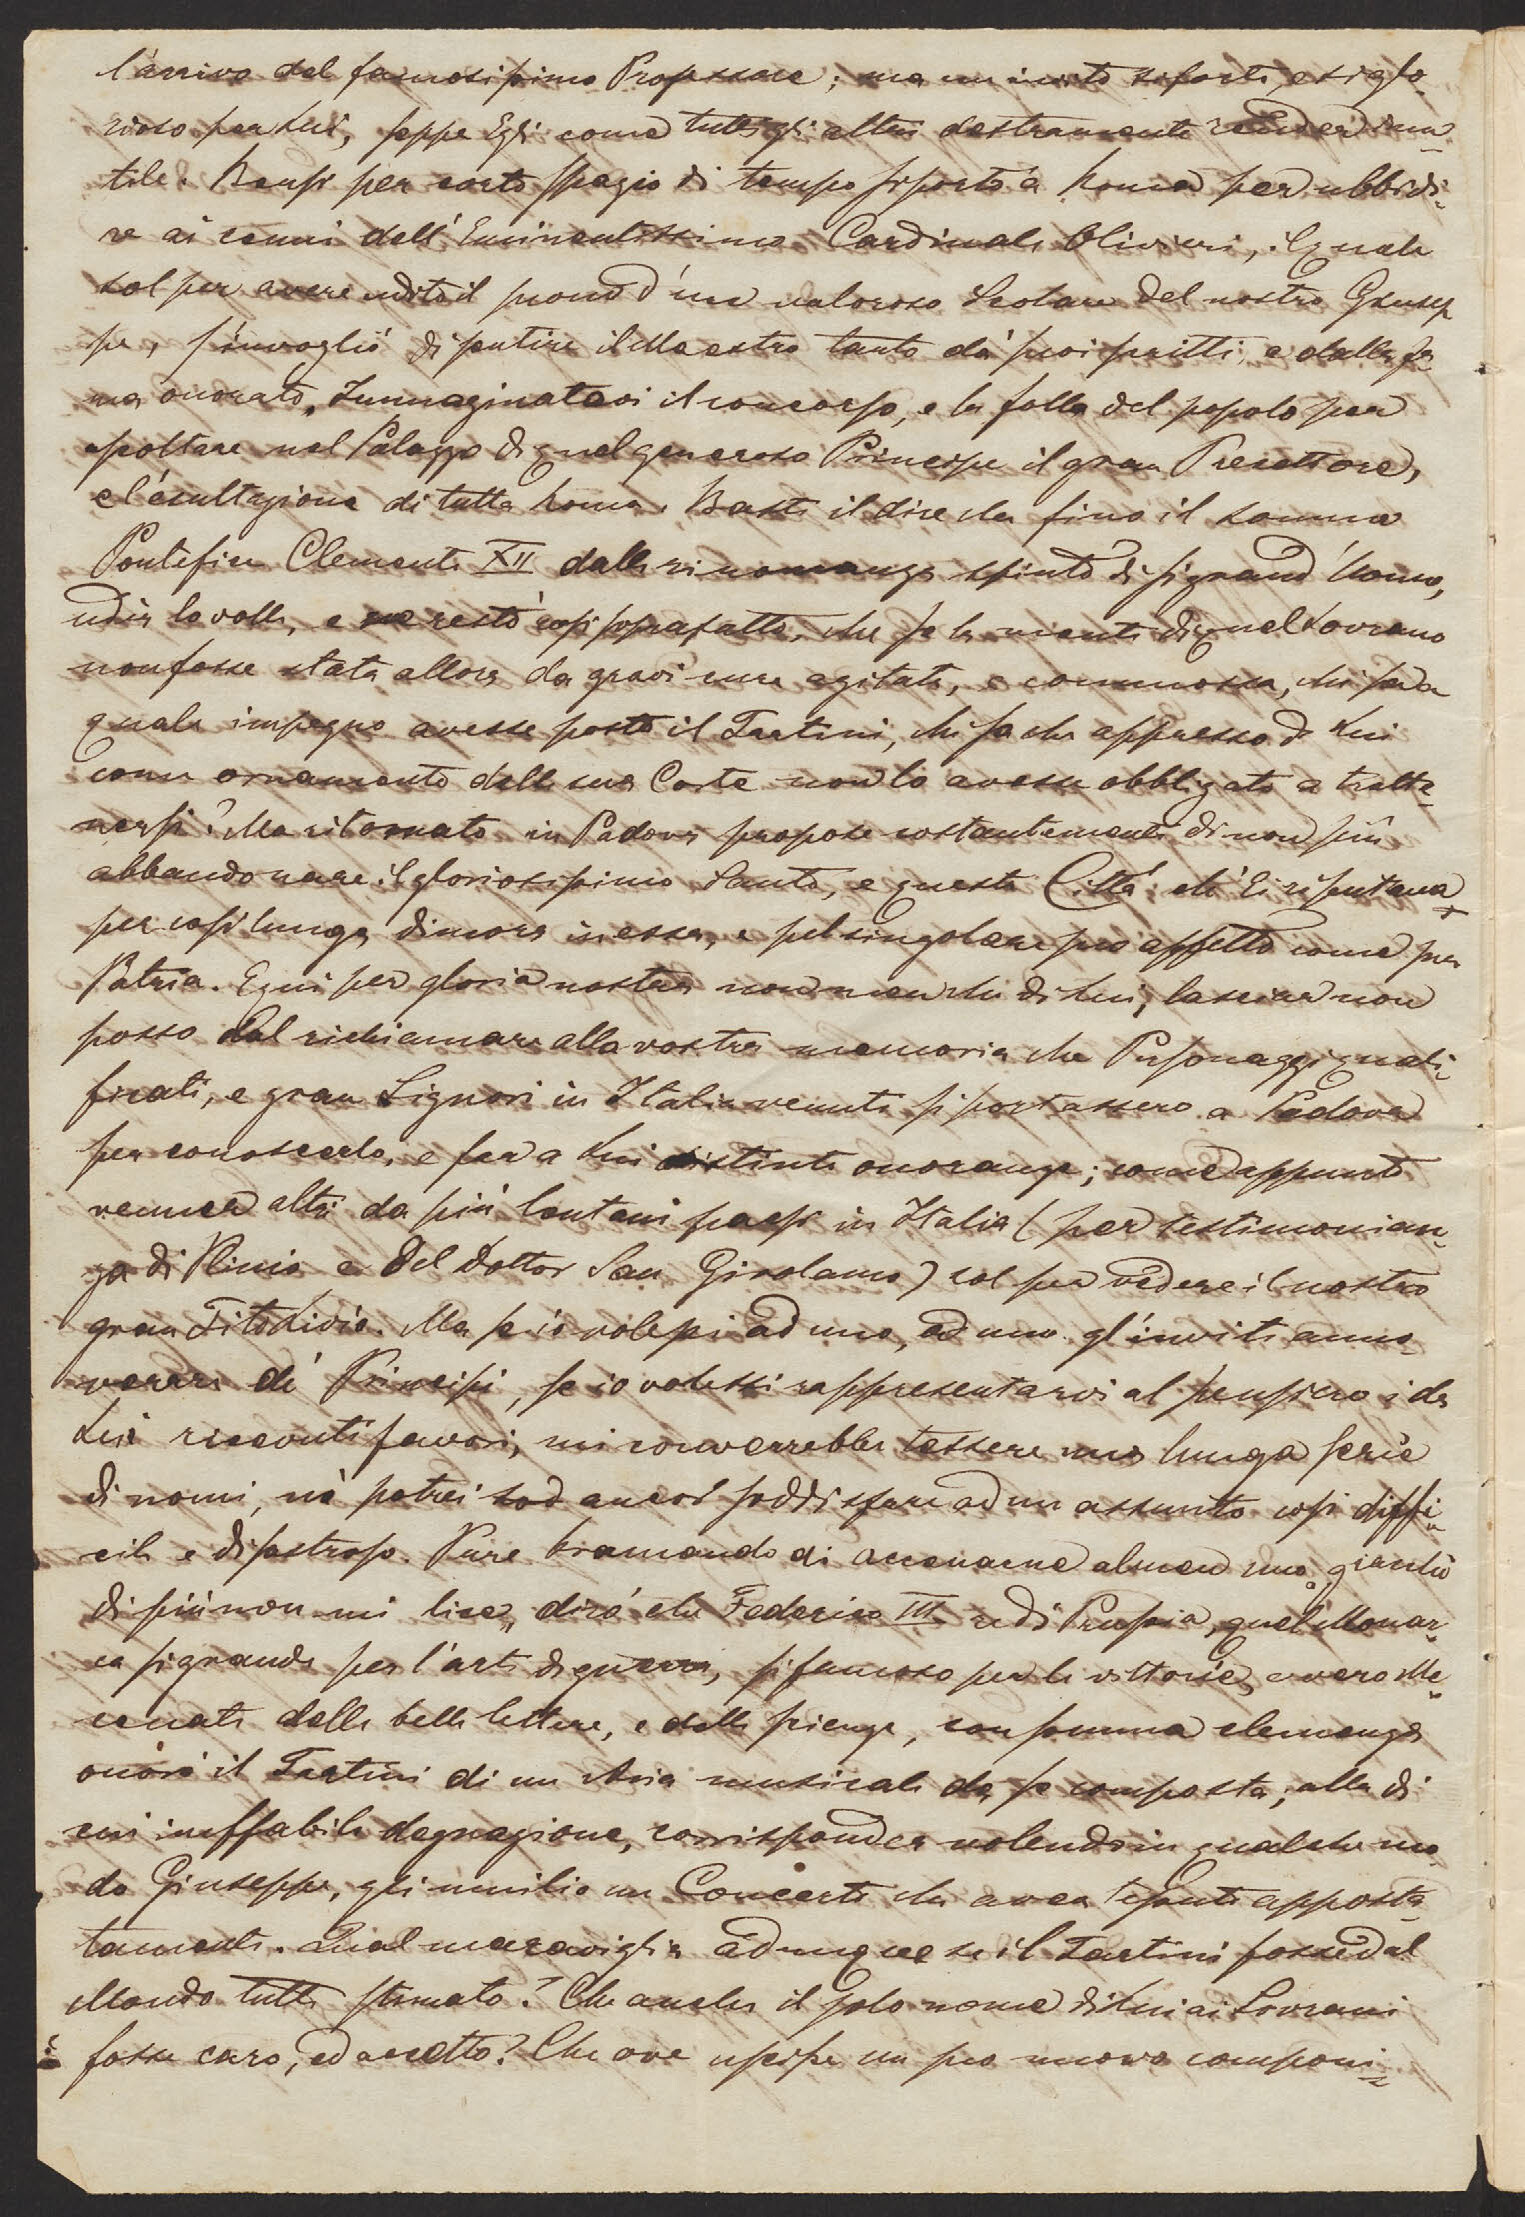 l'arrivo del famosissimo Professore; ma un invito sì forte, e sì glo-
rioso per Lui, seppe Egli come tutti gli altri destramente render inu-
tile. Bensì per corto spazio di tempo si portò a Roma per ubbidi-
re ai cenni dell'Eminentissimo Cardinale Olivieri, il quale
sol per avere udito il suono d'un valoroso Scolare del nostro Giusep-
pe, s'invogliò di sentire il Maestro tanto da' suoi scritti, e dalla fa-
ma onorato. Immaginatevi il concorso, e la folla del popolo per
ascoltare nel Palazzo di quel generoso Principe il gran Precettore,
e l'esultazione di tutta Roma. Basti il dire che fino il sommo
Pontefice Clemente XII dalla rinomanza spinto di sì grand'Uomo,
udir lo volle, e ne restò così soprafatto, che se la mente di quel Sovrano
non fosse stata allora da gravi cure agitata, e commossa, chi sa in
quale impegno avesse posto il Tartini, chi sa che appresso di Lui
come ornamento della sua Corte non lo avesse obbligato a tratte-
nersi? Ma ritornato in Padova propose costantemente di non più
abbandonare il gloriosissimo Santo, e questa Città ch'Ei riputava
per così lunga dimora in essa, e pel singolare suo affetto come per
Patria. E qui per gloria nostra non men che di Lui, lasciar non
posso dal richiamare alla vostra memoria che Personaggi quali-
ficati, e gran Signori in Italia venuti si portassero a Padova
per conoscerlo, e far a Lui distinte onoranze; come appunto
vennero altri da più lontani paesi in Italia (per testimonian-
za di Plinio e del Dottor San Girolamo) sol per vedere il nostro
gran Tito Livio. Ma se io volessi ad uno, ad uno gl'inviti anno-
verare de' Principi, se io volessi rappresentarvi al pensiero i da
Lui ricevuti favori, mi converrebbe tessere una lunga serie
di nomi, nè potrei sod ancor soddisfare ad un assunto così diffi-
cile e disastroso. Pure bramando di accenarne almen uno, giacchè
di più non mi lice, dirò che Federico III re di Prussia, quel Monar-
ca sì grande per l'arte di guerra, sì famoso per le vittorie, e vero Me-
cenate delle belle lettere, e delle scienze, con somma clemenza
onorò il Tartini di un Aria musicale da se composta; alla di
cui ineffabile degnazione, corrisponder volendo in qualche mo-
do Giuseppe, gli umiliò un Concerto che avea tessuto apposta-
tamente. Qual maraviglia adunque se il Tartini fosse dal
Mondo tutto stimato? Che anche il solo nome di Lui ai Sovrani
fosse caro, ed accetto? Che ove uscisse un suo nuovo componi-